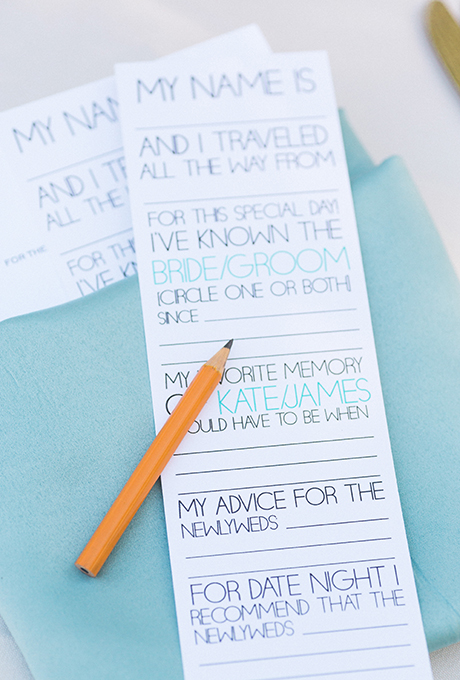 MY NAME IS
AND I TRAVELED
ALL THE WAY FROM
FOR THIS SPECIAL DAY!
I'VE KNOWN THE
BRIDE/GROOM
[CIRCLE ONE OR BOTH]
SINCE
MY FAVORITE MEMORY
KATE/JAMES
WOULD HAVE TO BE WHEN
MY ADVICE FOR THE
NEWLYWEDS
FOR DATE NIGHT I
RECOMMEND THAT THE
NEWLYWEDS
MY NAM
AND I T
ALL THE W
FOR THE
FOR THIS
I'VE KNO